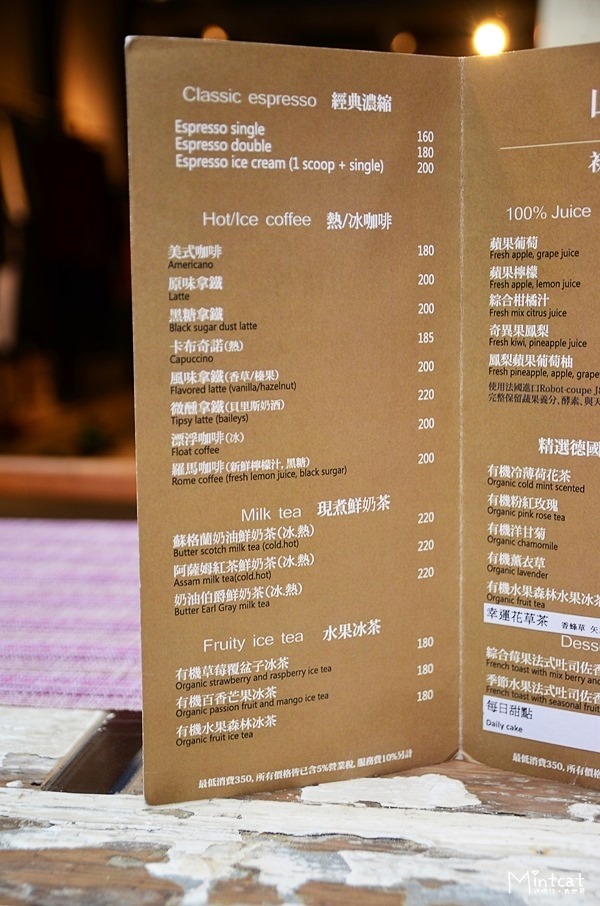 Classic espresso 經典濃縮
Espresso single 160
Espresso double 180
Espresso ice cream (1 scoop + single) 200
Hot/Ice coffee 熱/冰咖啡
美式咖啡 180
Americano
原味拿鐵 200
Latte
黑糖拿鐵 200
Black sugar dust latte
卡布奇諾(熱) 185
Capuccino
風味拿鐵(香草/榛果) 200
Flavored latte (vanilla/hazelnut)
微醺拿鐵(貝里斯奶酒) 220
Tipsy latte (baileys)
漂浮咖啡(冰) 200
Float coffee
羅馬咖啡(新鮮檸檬汁,黑糖) 200
Rome coffee (fresh lemon juice, black sugar)
Milk tea 現煮鮮奶茶
蘇格蘭奶油鮮奶茶(冰.熱) 220
Butter scotch milk tea (cold.hot)
阿薩姆紅茶鮮奶茶(冰.熱) 220
Assam milk tea(cold.hot)
奶油伯爵鮮奶茶(冰.熱) 220
Butter Earl Gray milk tea
Fruity ice tea 水果冰茶
有機草莓覆盆子冰茶 180
Organic strawberry and raspberry ice tea
有機百香芒果冰茶 180
Organic passion fruit and mango ice tea
有機水果森林冰茶 180
Organic fruit ice tea
最低消費350,所有價格皆已含5%營業稅,服務費10%另計
100% Juice
蘋果葡萄
Fresh apple, grape juice
蘋果檸檬
Fresh apple, lemon juice
綜合柑橘汁
Fresh mix citrus juice
奇異果鳳梨
Fresh kiwi, pineapple juice
鳳梨蘋果葡萄柚
Fresh pineapple, apple, grape
使用法國進口Robot-coupe
完整保留蔬果養分、酵素、與
精選德國
有機冷薄荷花茶
Organic cold mint scented
有機粉紅玫瑰
Organic pink rose tea
有機洋甘菊
Organic chamomile
有機薰衣草
Organic lavender
有機水果森林水果冰
Organic fruit tea
幸運花草茶 香蜂草
Desse
綜合莓果法式吐司佐香
French toast with mix berry an
季節水果法式吐司佐香
French toast with seasonal fruit
每日甜點
Daily cake
最低消費350,所有價格
Mintcat